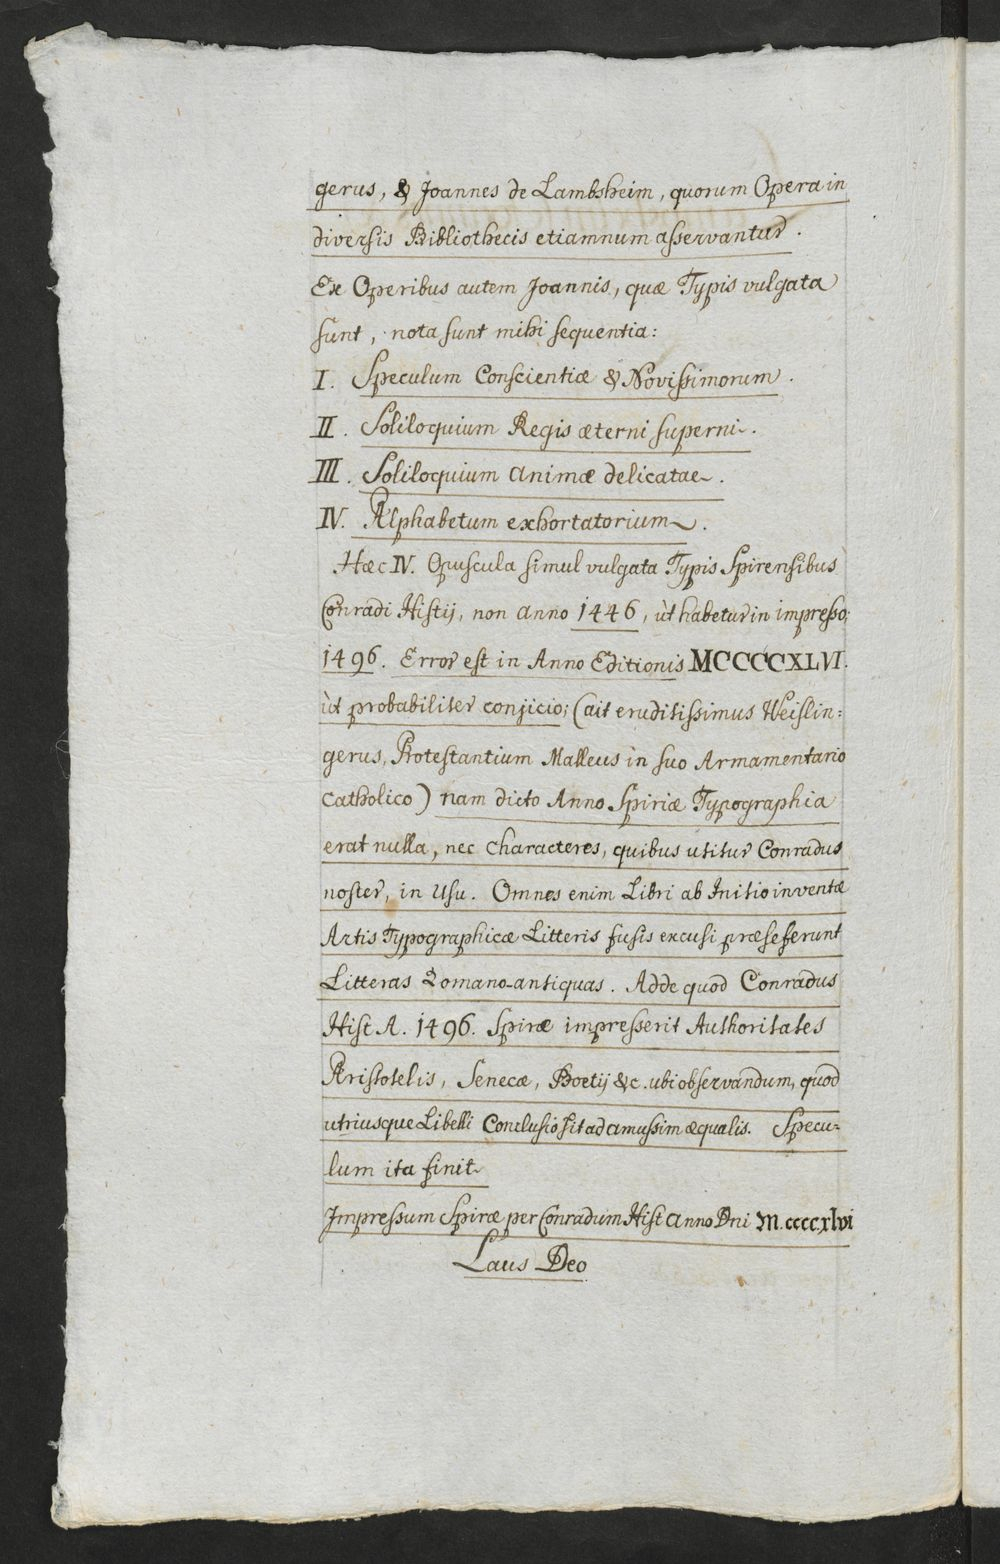 gerus, & Joannes de Lambsheim, quorum Opera in
diversis Bibliothecis etiamnum asservantur.
Ex Operibus autem Joannis, quæ Typis vulgata
sunt, nota sunt mihi sequentia:
I. Speculum Conscientiæ & Novissimorum.
II. Soliloquium Regis æterni superni.
III. Soliloquium animæ delicatae.
IV. Alphabetum exhortatorium.
Hæc IV. Opuscula simul vulgata Typis Spirensibus
Conradi Histij, non anno 1446, ùt habetur in impresso;
1496. Error est in Anno Editionis MCCCCXLVI.
ùt probabiliter conjicio; (ait eruditissimus Weislin:
gerus, Protestantium Malleus in suo Armamentario
Catholico) nam dicto Anno Spiriæ Typographia
erat nulla, nec Characteres, quibus utitur Conradus
noster, in Usu. Omnes enim Libri ab Initio inventæ
Artis Typographicæ Litteris fusis excusi præseferunt
Litteras Romano-antiquas. Adde quod Conradus
Hist A. 1496. Spiræ impresserit Authoritates
Aristotelis, Senecæ, Boetij &c. ubi observandum, quod
utriusque Libelli Conclusio sit ad amussim æqualis. Specu-
lum ita finit
Impressum Spiræ per Conradum Hist anno Dni M.ccccxlvi
Laus Deo